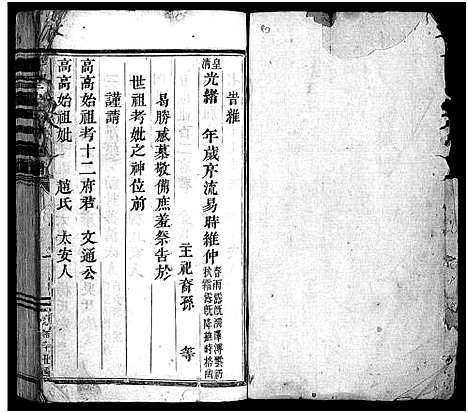 旹維
皇清光緒　年歲序流易時維仲春雨露旣濡澤溥雲礽秋霜露旣降撫時格函
主祀裔孫　等
曷勝感慕敬備庶羞祭告於
世祖考妣之神位前
謹請
高高始祖考十二府君　文通公
高高始祖妣　趙氏　太安人